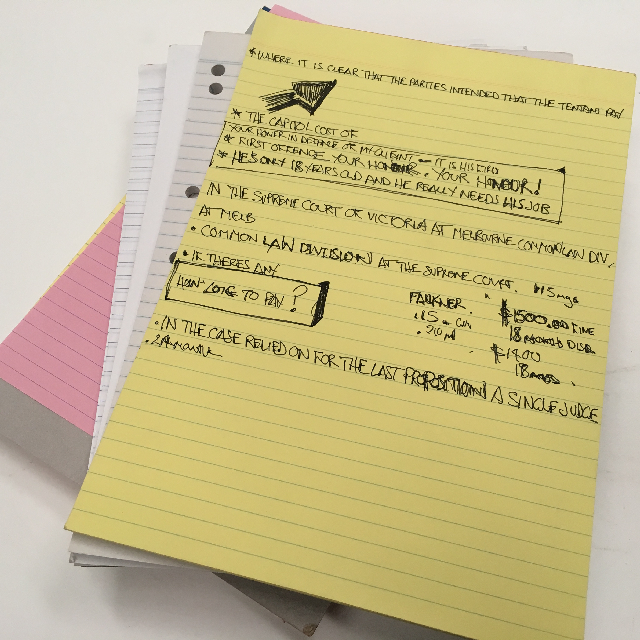 * WHERE IT IS CLEAR THAT THE PARTIES INTENDED THAT THE TENTANT PAY
* THE CAPITOL COST OF
YOUR POWER IN DEFENCE OF MY CLIENT — IT IS HIS
* FIRST OFFENCE. YOUR HONOUR. YOUR HONOUR!
* HE'S ONLY 18 YEARS OLD AND HE REALLY NEEDS HIS JOB
IN THE SUPREME COURT OF VICTORIA AT MELBOURNE COMMON LAW DIV,
AT MELB
• COMMON LAW DIVISION) AT THE SUPREME COURT.
• IF THERES ANY
HOW LONG TO PAY?
FAULKNER.
$1500.00 FINE
18 MONTHS DISQ.
$1400
18
• IN THE CASE RELIED ON FOR THE LAST PROPOSITION) A SINGLE JUDGE